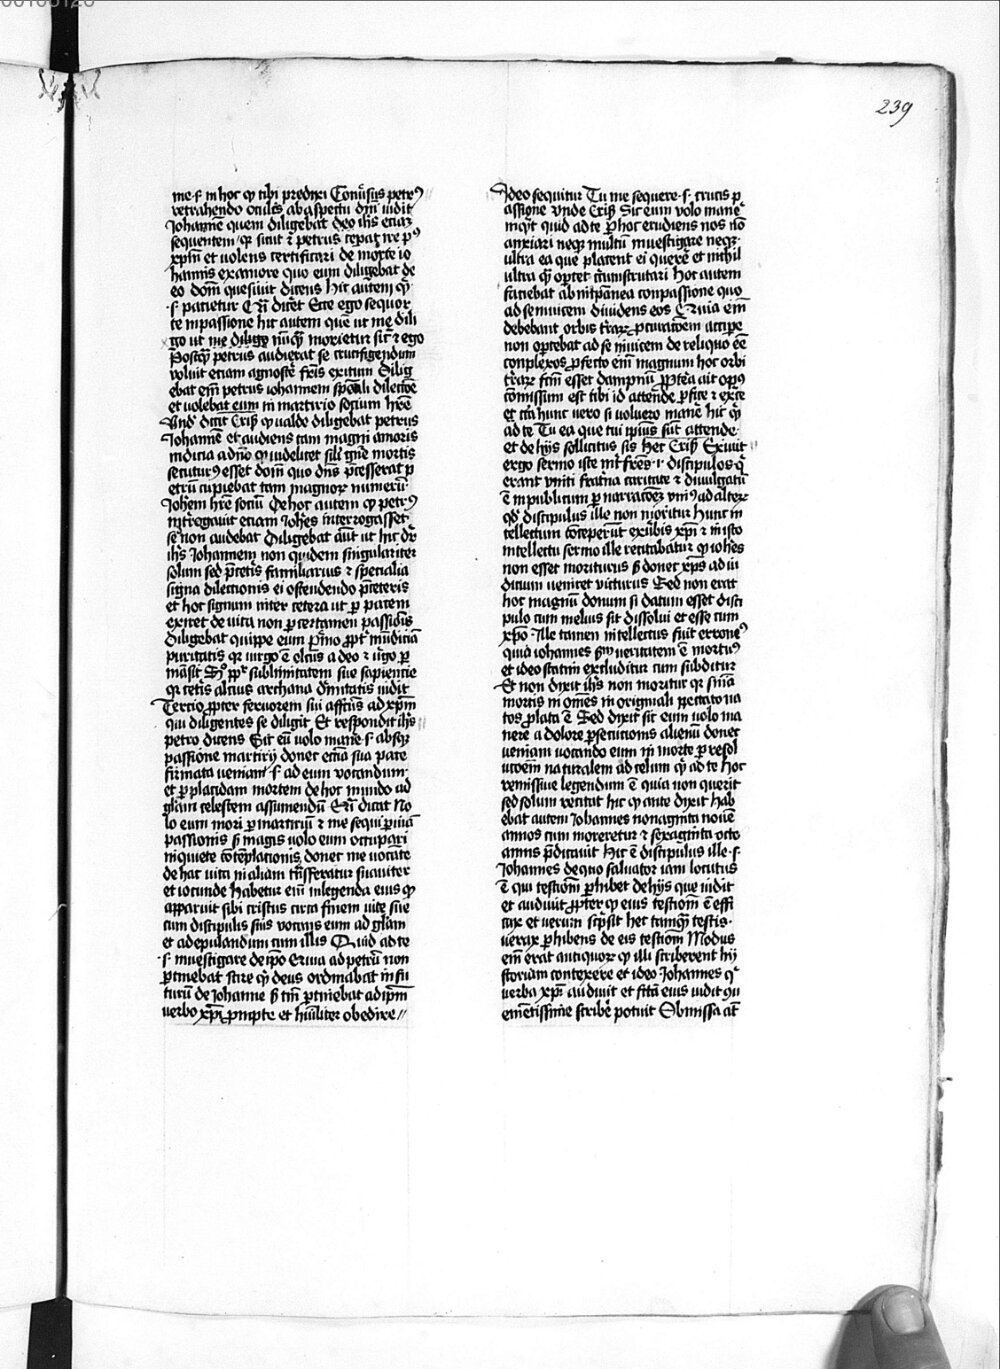 239
me .s. in hoc qͥ tibi predixi Conu̅sus petrꝰ
retrahendo oculos ab aspectu dn̅i uidit
Johanne̅ quem diligebat deo ih̅s etiaꝫ
sequentem
xp̅m et volens certificari de morte io
hannis ex amore quo eum diligebat de
eo dom̅ quesiuit dicens hic autem qͥ
.s. patietur
te in passione hic autem que̅ ut me dili
go ut me dilige nu̅qͣ morietur sic̅ ⁊ ego
Postqͣ petrus audierat se crucifigendum
voluit etiam agnosce̅ fr̅is exitum Dilig
ebat em̅ petrus iohannem sp̅eali dilect̅oe
et volebat eum in martirio socium hr̅e
Vnd̅ dicit Cris̅ qͥ ualde diligebat petrus
Johanne̅ et audiens tam magni amoris
indicia a dn̅o
secuturꝰ esset dom̅ quo dn̅s p̅cesserat p
etru̅ cupiebat tam magnoꝝ numeru̅
Joh̅em hr̅e sociu̅ De hoc autem qͥ petrꝰ
int̅rogauit etiam Joh̅es interrogasset
se̅ non audebat Diligebat au̅t ut hic dr̅
ih̅s Johannem non quidem singulariter
solum sed p̅ceteris familiarius ⁊ specialia
signa dilectionis ei ostendendo p̅ceteris
et hoc signum inter cetera ut p̲ pacem
exiret de uita non p̲ certamen passionis
Diligebat quippe eum p̅mo p̲pt̅ mu̅diciam
puritatis qꝛ uirgo e̅ el̅cus a deo ⁊ u̅go p̲
ma̅sit Sꝰ p̲p̅t sublimitatem sue sapiencie
qꝛ cetis alcius archana di̅nitatis uidit
Tercio p̲pter feruorem sui affc̅us ad xp̅m
qui diligentes se diligit Et respondit ih̅s
petro dicens Sic eu̅ uolo mane̅ .s. absqꝫ
passione martirij donec cu̅ia sua pace
firmata ueniam .s. ad eum vocandum
et p̲ placidam mortem de hoc mundo ad
gl̅iam celestem assumendu̅
lo eum mori p̲ martiriu̅ ⁊ me sequi p̲ uia̅
passionis sꝫ magis uolo eum occupari
in quiete co̅te̅plationis, donec me uoca̅te
de hac uita in aliam tr̅sferatur suauiter
et iocunde habetur em̅ in legenda eius qͥ
apparuit sibi cristus circa finem uite sue
cum discipulis suis vocans eum ad gl̅iam
et ad epulandum cum illis Quid ad te
.s. inuestigare de ip̅o
p̲tinebat scire qͥ deus ordinabat in fu
turu̅ de Johanne sꝫ tm̅ p̲tinebat ad ip̅m
uerbo xp̅i p̲mpte et hu̅iliter obedire //
Ideo sequitur Tu me sequere .s. crucis p
assione Vnde Cris̅ Sic eum volo mane̅
inq̅t quid ad te p̲ hoc erudiens nos no̅
anxiari neqꝫ multu̅ inuestigare neqꝫ
ultra ea que placent ei quere̅ et nichil
ultra qͣ optet t̅nscrutari hoc autem
faciebat ab
ad se inuicem diuidens eos
debebant orbis t̅raꝝ p̲curat̅oem accip̅e
non optebat ad se inuicem de reliquo e̅e
complexos p̲fecto em̅ magnum hoc orbi
t̅raꝝ fm̅ esset dampnu̅ p̲pt̅ea ait opꝰ
com̅issum est tibi id attende p̲fice ⁊
et
ad te Tu ea que tui ipsius su̅t attende
et de hijs sollicitus sis Hec Cris̅ Exiuit
ergo sermo iste int̅ fr̅es .i. discipulos qͥ
erant vniti frat̅na caritate ⁊ diuulgatu̅
e̅ in publicum p̲ narrac̅oeꝫ vniꝰ ad alteꝝ
qͩ discipulus ille non moritur hunc in
tellectum
intellectu sermo ille recitabatur qͥ ioh̅es
non esset moriturus sꝫ donec xp̅s ad iu
dicium ueniret victurus Sed non erat
hoc magnu̅ donum si datum esset disci
pulo cum melius sit dissolui et esse cum
xp̅o Ille tamen intellectus fuit erroneꝰ
quia iohannes sm̅ veritatem e̅ mortuꝰ
et ideo statim excluditur cum subditur
Et non dixit ih̅s non moritur qꝛ sn̅ia
mortis in om̅es in originali peccato na
tos p̲lata e̅ Sed dixit sic eum uolo ma
nere a dolore p̲secutionis alienu̅ donec
ueniam uocando eum in morte p̲ resol
uc̅oem naturalem ad celum qͥ ad te Hoc
remissiue legendum e̅ quia non querit
sed solum recitat hic qͥ ante dixit Hab
ebat autem Johannes nonaginta noue̅
annos cum moreretur ⁊ sexaginta octo
annis p̲dicauit Hic e̅ discipulus ille .s.
Johannes de quo saluator iam locutus
e̅ qui testiom̅ p̲hibet de hijs que uidit
et audiuit p̲pter qͥ eius testiom̅ e̅ effi
cax et uerum sc̅psit hec tamqͣ testis
uerax p̲hibens de eis testiom̅ Modus
em̅ erat antiquoꝝ qͥ illi scriberent hy
storiam contexere et ideo Johannes qͥ
verba xp̅i audiuit et fc̅a eius uidit
scribe̅ potuit Obmissa